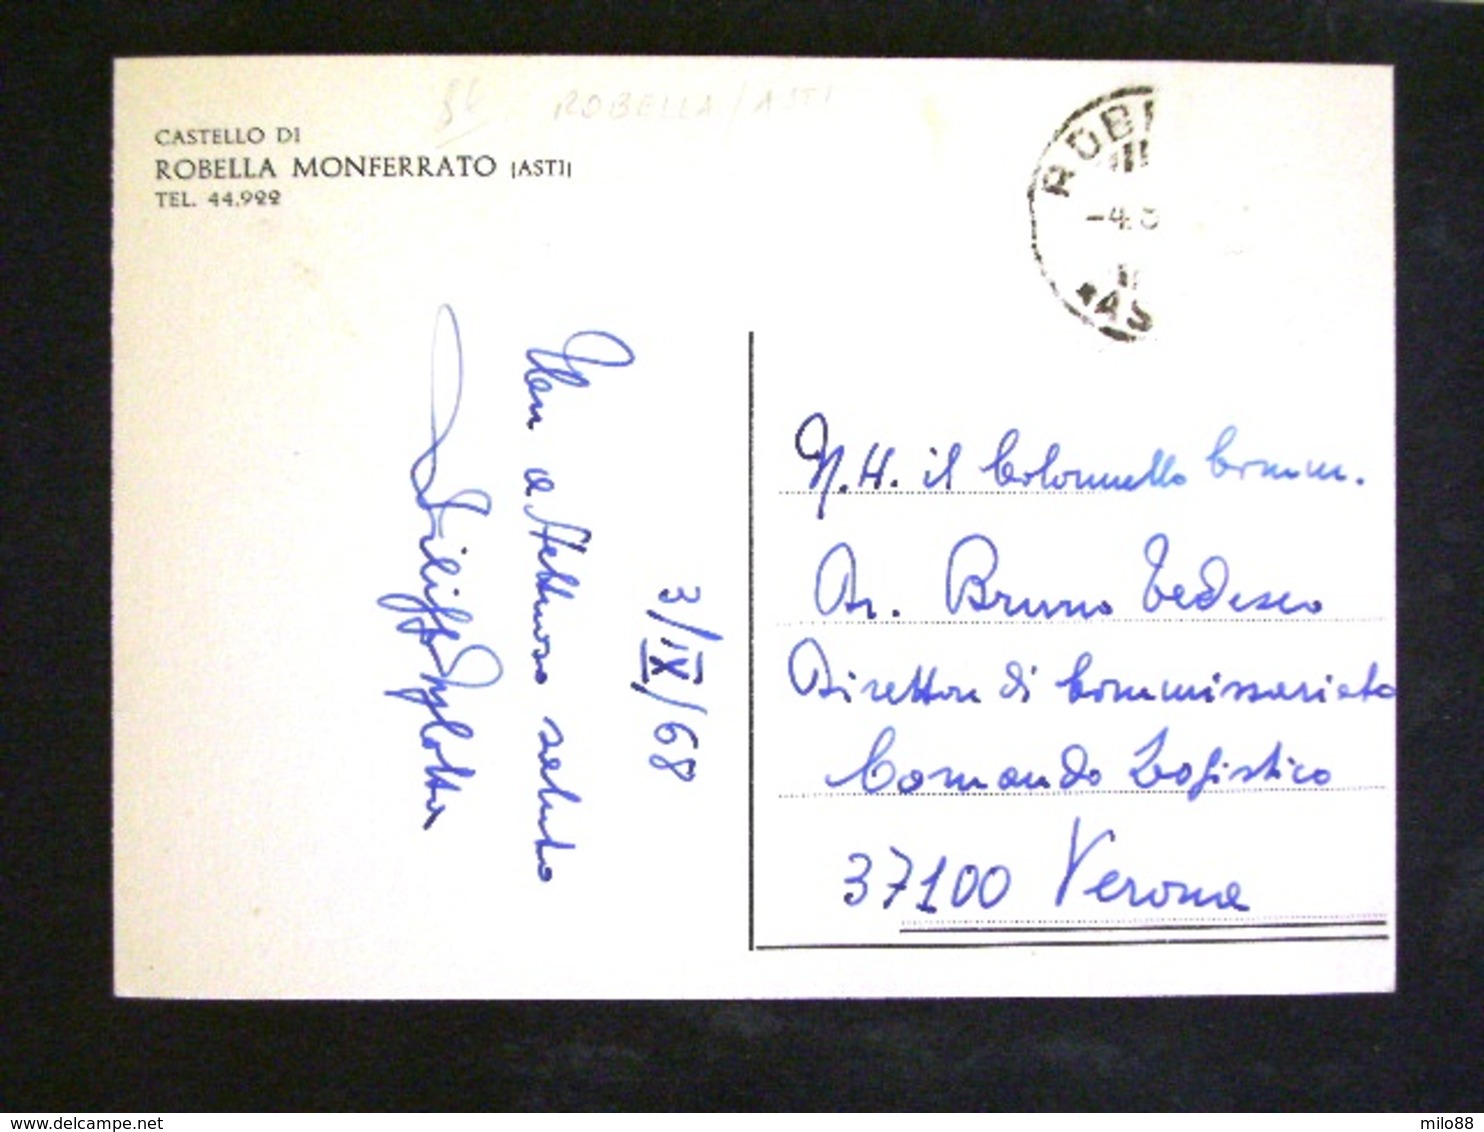 ROBELLA / ASTI
CASTELLO DI
ROBELLA MONFERRATO (ASTI)
TEL. 44.922
ROB
-4.
AS
3/IX/68
Un affettuoso saluto
Filippo
N.H. il Colonnello Comm.
Dr. Bruno Tedesco
Direttore di Commissariato
Comando Logistico
37100 Verona
milo88